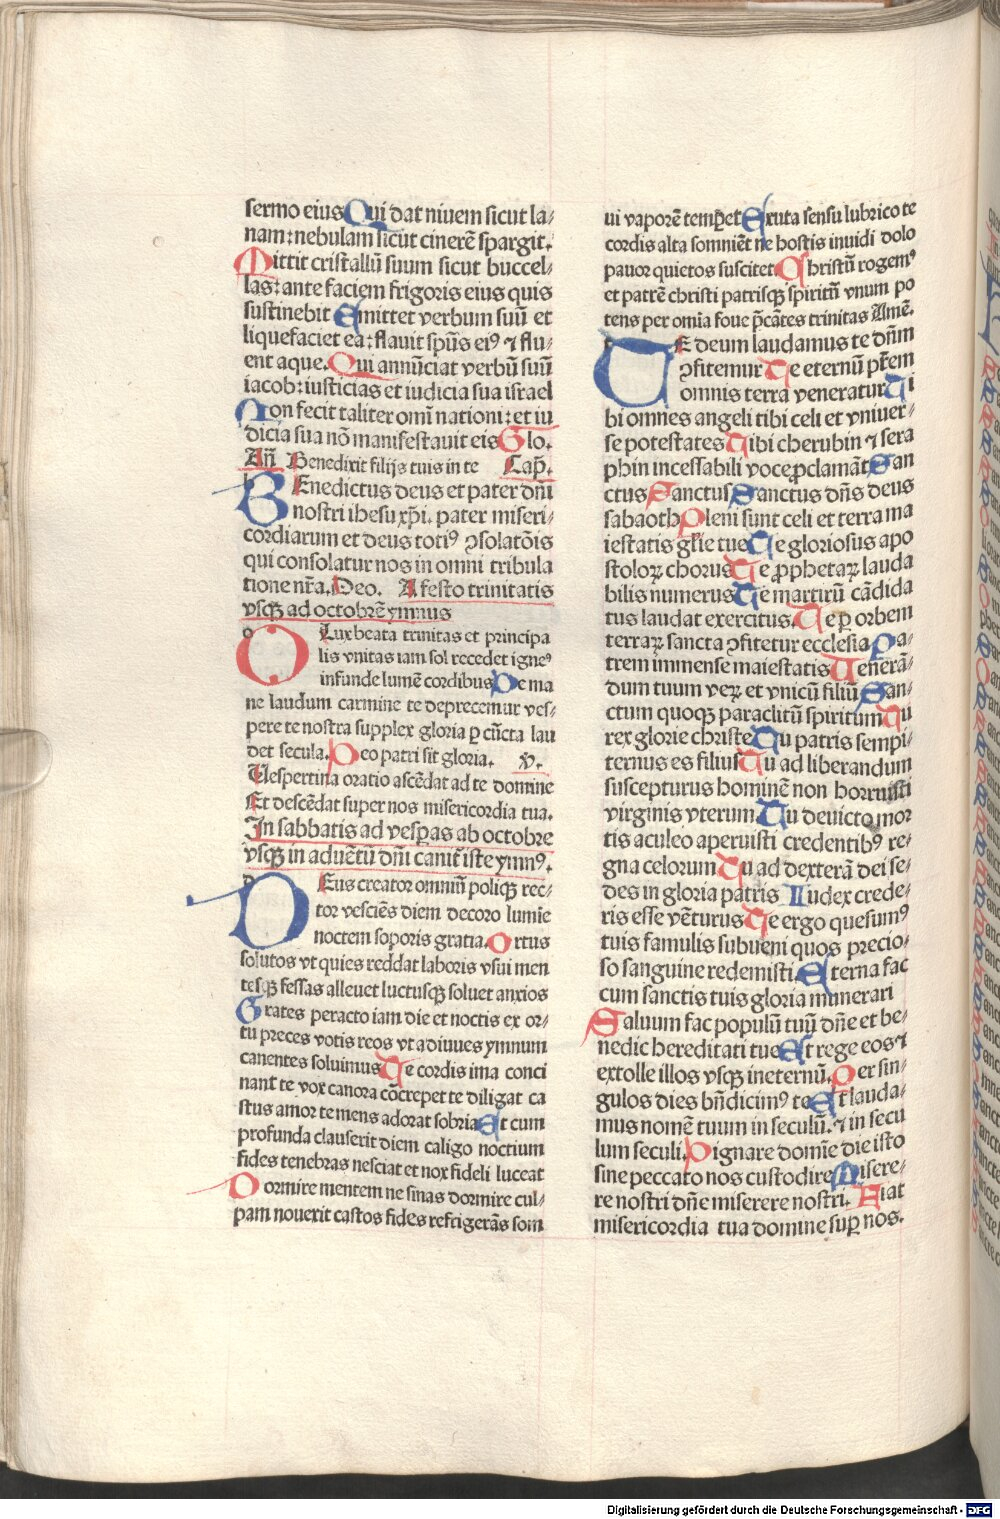 sermo eius Qui dat niuem sicut la⸗
nam: nebulam sicut cinerē spargit.
Mittit cristallū suum sicut buccel⸗
las: ante faciem frigoris eius quis
sustinebit Emittet verbum suū et
liquefaciet ea: flauit spūs eiꝰ ⁊ flu⸗
ent aque. Qui annūciat verbū suū
iacob: iusticias et iudicia sua israel
Non fecit taliter omī nationi: et iu
dicia sua nō manifestauit eis Glo.
Añ Benedixit filijs tuis in te Cap̄.
BEnedictus deus et pater dn̄i
nostri ihesu xp̄i. pater miseri⸗
cordiarum et deus totiꝰ ↄsolatōis
qui consolatur nos in omni tribula
tione nr̄a. Deo. A festo trinitatis
vsqꝫ ad octobrē ymnus
O Lux beata trinitas et principa
lis vnitas iam sol recedet igneꝰ
infunde lumē cordibus De ma
ne laudum carmine te deprecemur ves⸗
pere te nostra supplex gloria ꝑ cūcta lau
det secula. Deo patri sit gloria. v̄.
Vespertina oratio ascēdat ad te domine
Et descēdat super nos misericordia tua.
In sabbatis ad vesꝑas ab octobre
vsqꝫ in aduētū dn̄i canit̄ iste ymnꝰ.
DEus creator omniū poliqꝫ rec⸗
tor vesciēs diem decoro lumīe
noctem soporis gratia. Ortus
solutos vt quies reddat laboris vsui men
tesqꝫ fessas alleuet luctusqꝫ soluet anxios
Grates peracto iam die et noctis ex or⸗
tu preces votis reos vt adiuues ymnum
canentes soluimus Te cordis ima conci
nant te vox canora cōcrepet te diligat ca
stus amor te mens adorat sobria Et cum
profunda clauserit diem caligo noctium
fides tenebras nesciat et nox fideli luceat
Dormire mentem ne sinas dormire cul⸗
pam nouerit castos fides refrigerās som
ui vaporē temꝑet Exuta sensu lubrico te
cordis alta somniēt ne hostis inuidi dolo
pauor quietos suscitet Christū rogemꝰ
et patrē christi patrisqꝫ spiritū vnum po
tens per omīa foue p̄cātes trinitas Amē.
TE deum laudamus te dn̄m
ↄfitemur Te eternū pr̄em
omnis terra veneratur Ti
bi omnes angeli tibi celi et vniuer⸗
se potestates Tibi cherubin ⁊ sera
phin incessabili voce ꝓclamāt San
ctus Sanctus Sanctus dn̄s deus
sabaoth Pleni sunt celi et terra ma
iestatis gl̄ie tue Te gloriosus apo
stoloꝝ chorus Te ꝓphetaꝝ lauda
bilis numerus Te martirū cādida
tus laudat exercitus. Te ꝑ orbem
terraꝝ sancta ↄfitetur ecclesia Pa⸗
trem immense maiestatis Venerā⸗
dum tuum veꝝ et vnicū filiū San⸗
ctum quoqꝫ paraclitū spiritum Tu
rex glorie christe Tu patris sempi⸗
ternus es filius Tu ad liberandum
suscepturus hominē non horruisti
virginis vterum Tu deuicto mor
tis aculeo aperuisti credentibꝰ re⸗
gna celorum Tu ad dexterā dei se⸗
des in gloria patris Iudex crede⸗
ris esse vēturus Te ergo quesumꝰ
tuis famulis subueni quos precio⸗
so sanguine redemisti Eterna fac
cum sanctis tuis gloria munerari
Saluum fac populū tuū dn̄e et be⸗
nedic hereditati tue Et rege eos ⁊
extolle illos vsqꝫ in eternū. Per sin⸗
gulos dies bn̄dicimꝰ te Et lauda⸗
mus nomē tuum in seculū. ⁊ in secu
lum seculi. Dignare domīe die isto
sine peccato nos custodire Misere⸗
re nostri dn̄e miserere nostri. Fiat
misericordia tua domine suꝑ nos.
Digitalisierung gefördert durch die Deutsche Forschungsgemeinschaft - DFG